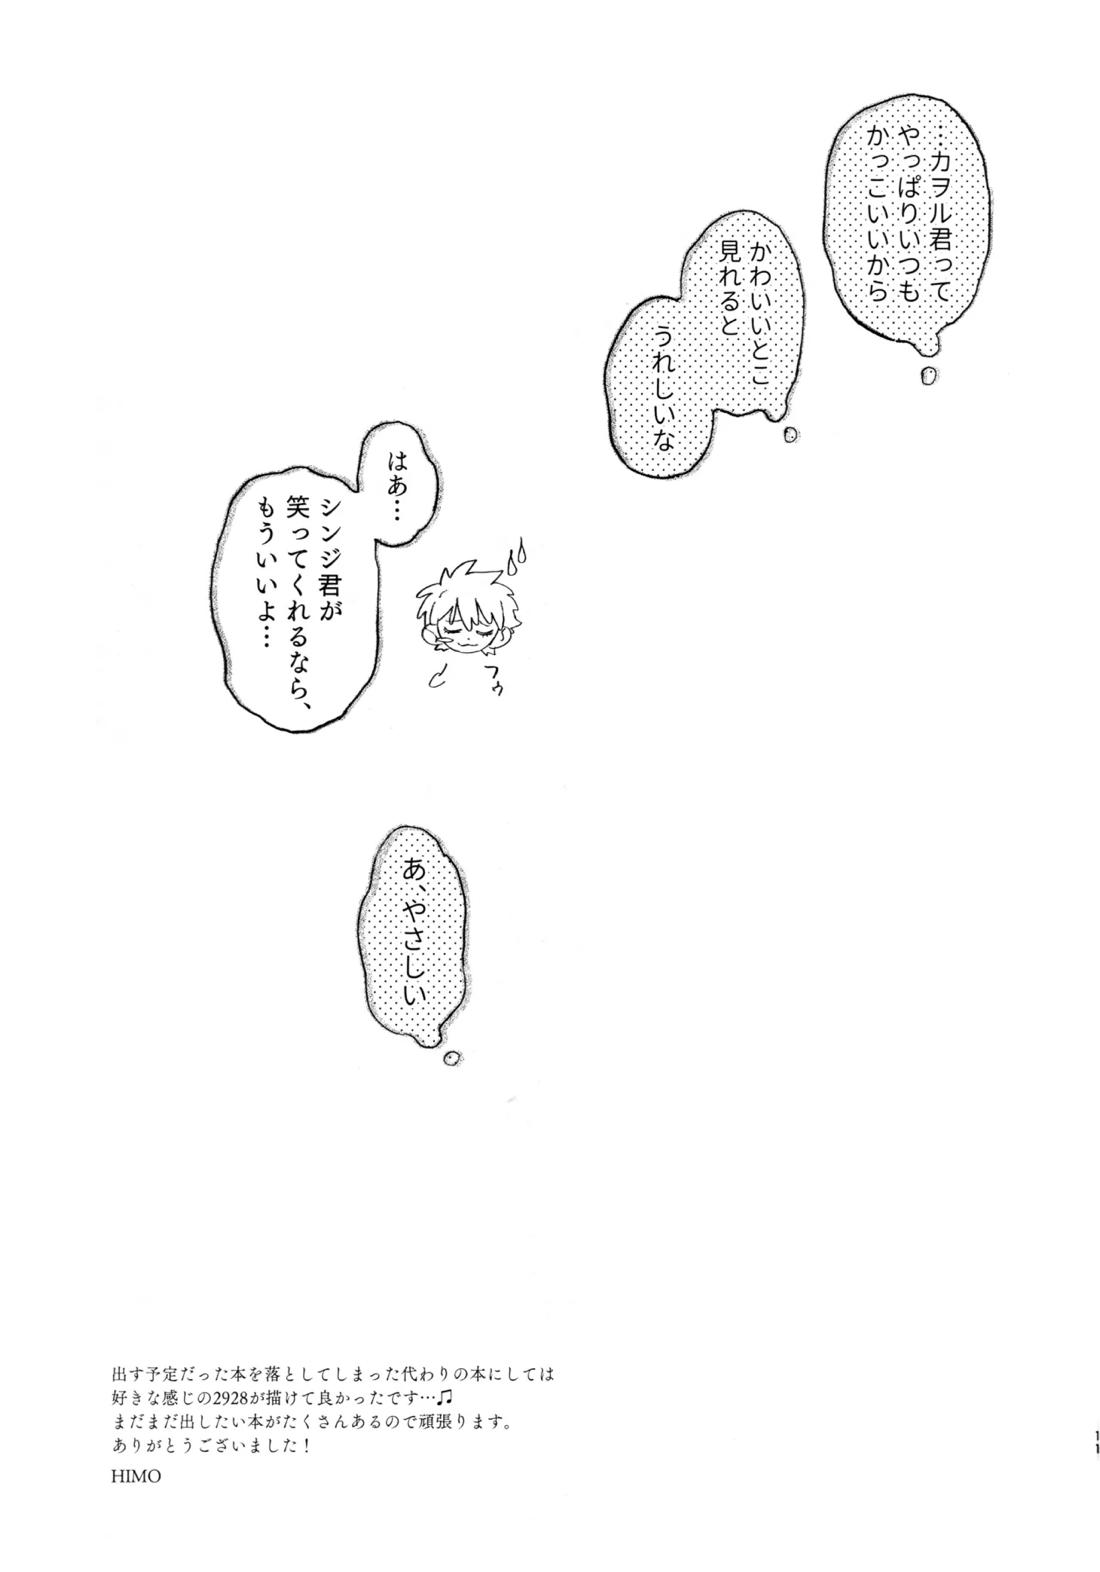 …カヲル君って
やっぱりいつも
かっこいいから
かわいいとこ
見れると
うれしいな
はあ…
シンジ君が
笑ってくれるなら、
もういいよ…
フゥ
あ、やさしい
出す予定だった本を落としてしまった代わりの本にしては
好きな感じの2928が描けて良かったです…♫
まだまだ出したい本がたくさんあるので頑張ります。
ありがとうございました！
HIMO
11